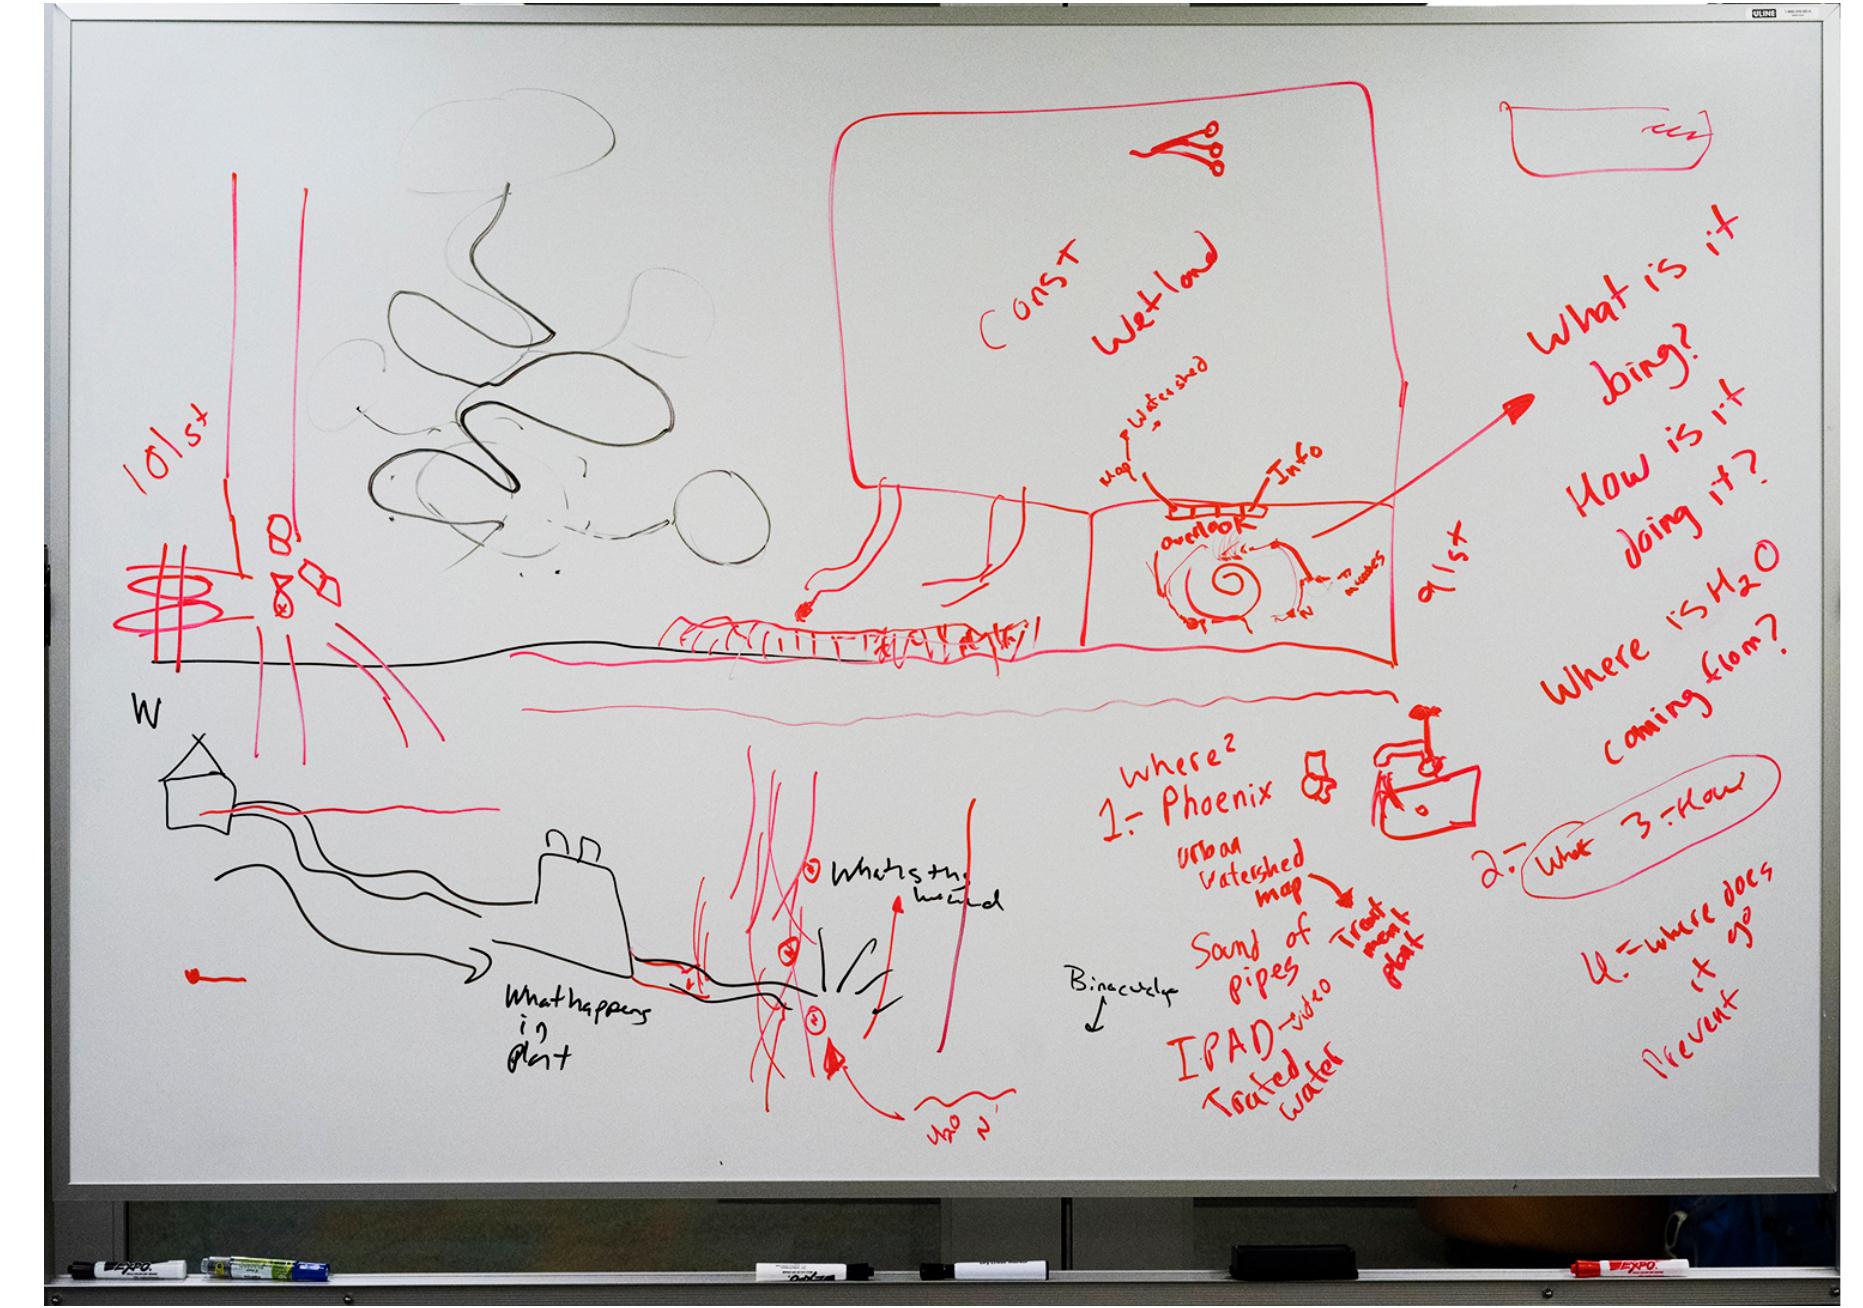 ULINE
Const
Wetland
Watershed
Map
Info
overlook
101st
91st
What is it
boing?
How is it
doing it?
Where is H2O
coming from?
W
Where?
1.- Phoenix
urban
watershed
map
Treat
ment
plant
Sound of
pipes
IPAD - video
Trated
water
2.- What 3.- How
4.- where does
it go
Prevent
What happens
in
plant
H2O N
EXPO
EXPO
EXPO